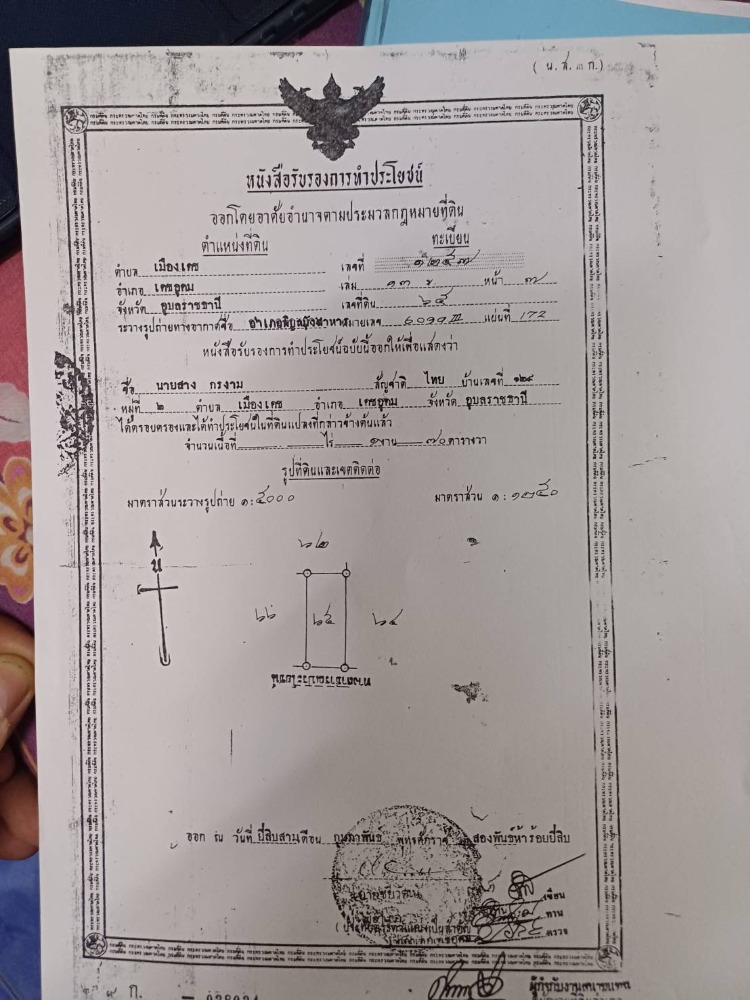 ( น.ส. ๓ ก.)
หนังสือรับรองการทำประโยชน์
ออกโดยอาศัยอำนาจตามประมวลกฎหมายที่ดิน
ตำแหน่งที่ดิน ทะเบียน
ตำบล เมืองเดช เลขที่
อำเภอ เดชอุดม เล่ม ๑๓ ข หน้า ๗
จังหวัด อุบลราชธานี เลขที่ดิน ๖๕
ระวางรูปถ่ายทางอากาศชื่อ อำเภอพิบูลมังสาหาร หมายเลข III แผ่นที่ 172
หนังสือรับรองการทำประโยชน์ฉบับนี้ออกให้เพื่อแสดงว่า
ชื่อ นายสาง กรงาม สัญชาติ ไทย บ้านเลขที่ ๑๒๔
หมู่ที่ ๒ ตำบล เมืองเดช อำเภอ เดชอุดม จังหวัด อุบลราชธานี
ได้ครอบครองและได้ทำประโยชน์ในที่ดินแปลงที่กล่าวข้างต้นแล้ว
จำนวนเนื้อที่ — ไร่ — งาน ๗๐ ตารางวา
รูปที่ดินและเขตติดต่อ
มาตราส่วนระวางรูปถ่าย ๑:๕๐๐๐ มาตราส่วน ๑:๑๒๕๐
น
๖๒
๖๖ ๖๕ ๖๔
ทางสาธารณประโยชน์
ออก ณ วันที่ ยี่สิบสาม เดือน กุมภาพันธ์ พุทธศักราช สองพันห้าร้อยยี่สิบ
เขียน
ทาน
ตรวจ